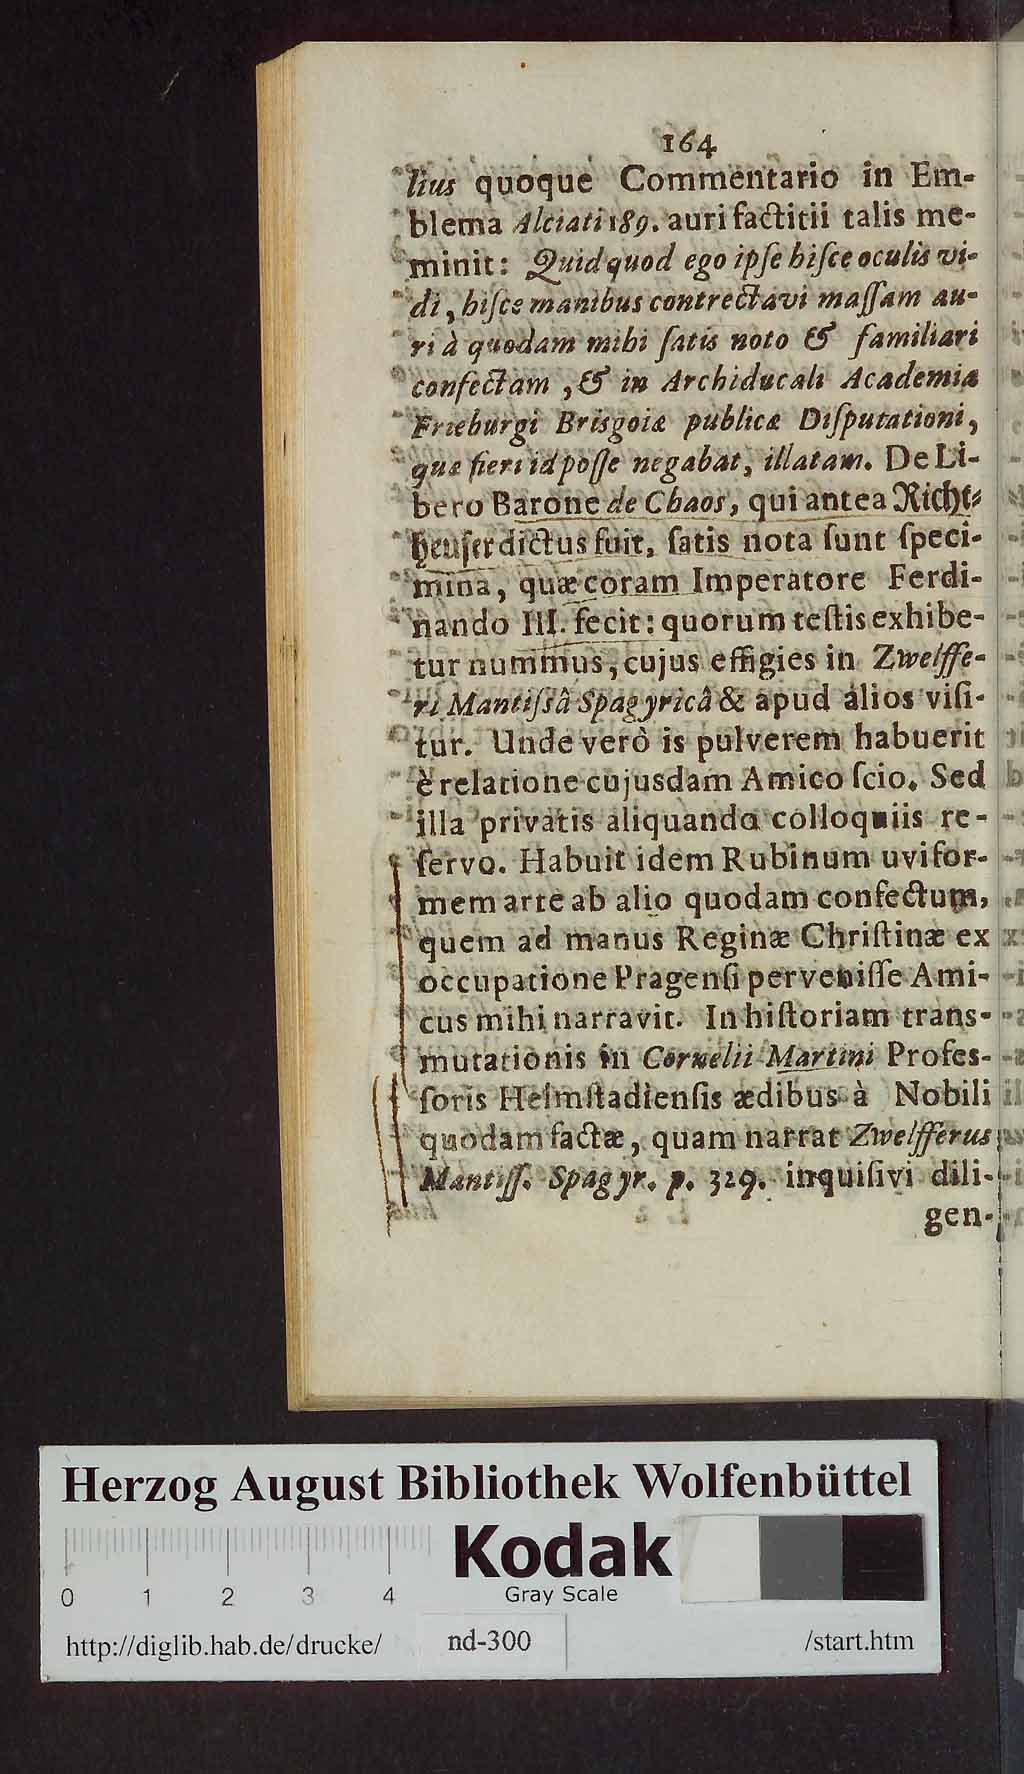 164
lius quoque Commentario in Em-
blema Alciati 189. auri factitii talis me-
minit: Quid quod ego ipſe hiſce oculis vi-
di, hiſce manibus contrectavi maſſam au-
ri à quodam mihi ſatis noto & familiari
confectam, & in Archiducali Academia
Frieburgi Brisgoiæ publicæ Diſputationi,
quæ fieri id poſſe negabat, illatam. De Li-
bero Barone de Chaos, qui antea Richt-
heuſer dictus fuit, ſatis nota ſunt ſpeci-
mina, quæ coram Imperatore Ferdi-
nando III. fecit: quorum teſtis exhibe-
tur nummus, cujus effigies in Zwelffe-
ri Mantiſsâ Spagyricâ & apud alios viſi-
tur. Unde verò is pulverem habuerit
è relatione cujusdam Amico ſcio. Sed
illa privatis aliquando colloquiis re-
ſervo. Habuit idem Rubinum uvifor-
mem arte ab alio quodam confectum,
quem ad manus Reginæ Chriſtinæ ex
occupatione Pragenſi perveniſſe Ami-
cus mihi narravit. In hiſtoriam trans-
mutationis in Cornelii Martini Profes-
ſoris Helmſtadienſis ædibus à Nobili
quodam factæ, quam narrat Zwelfferus
Mantiſſ. Spagyr. p. 329. inquiſivi dili-
gen-
Herzog August Bibliothek Wolfenbüttel
Kodak
Gray Scale
0 1 2 3 4
http://diglib.hab.de/drucke/ nd-300 /start.htm